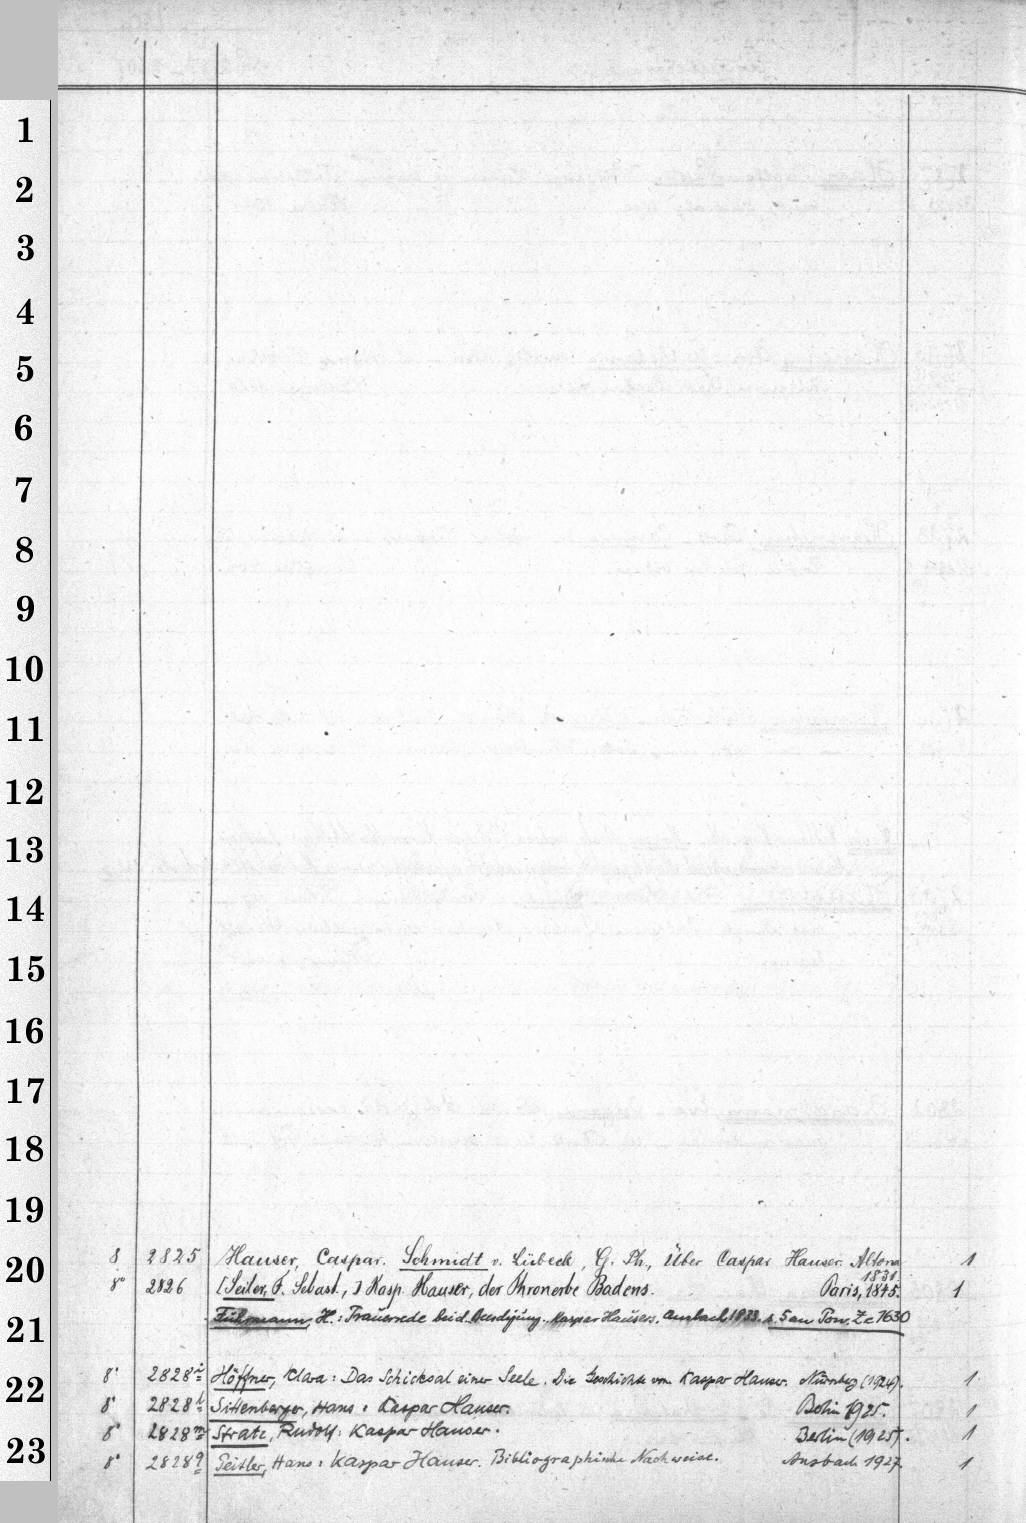 1
2
3
4
5
6
7
8
9
10
11
12
13
14
15
16
17
18
19
20
21
22
23
8 2825 Hauser, Caspar. Schmidt v. Lübeck, G. Ph., Über Caspar Hauser. Altona 1
1831.
8° 2826 [Seiler, F. Sebast.,] Kasp. Hauser, der Thronerbe Badens. Paris, 1845. 1
Fuhrmann, H.: Trauerrede bei d. Beerdigung Kaspar Hausers. Ansbach 1833. s. 5 an Pon. Zc 7630
8° 2828 i Höffner, Klara: Das Schicksal einer Seele. Die Geschichte vom Kaspar Hauser. Nürnberg (1924). 1
8° 2828 k Sittenberger, Hans: Kaspar Hauser. Berlin 1925. 1
8° 2828 m Stratz, Rudolf: Kaspar Hauser. Berlin (1925). 1
8° 2828 q Peitler, Hans: Kaspar Hauser. Bibliographische Nachweise. Ansbach 1927. 1